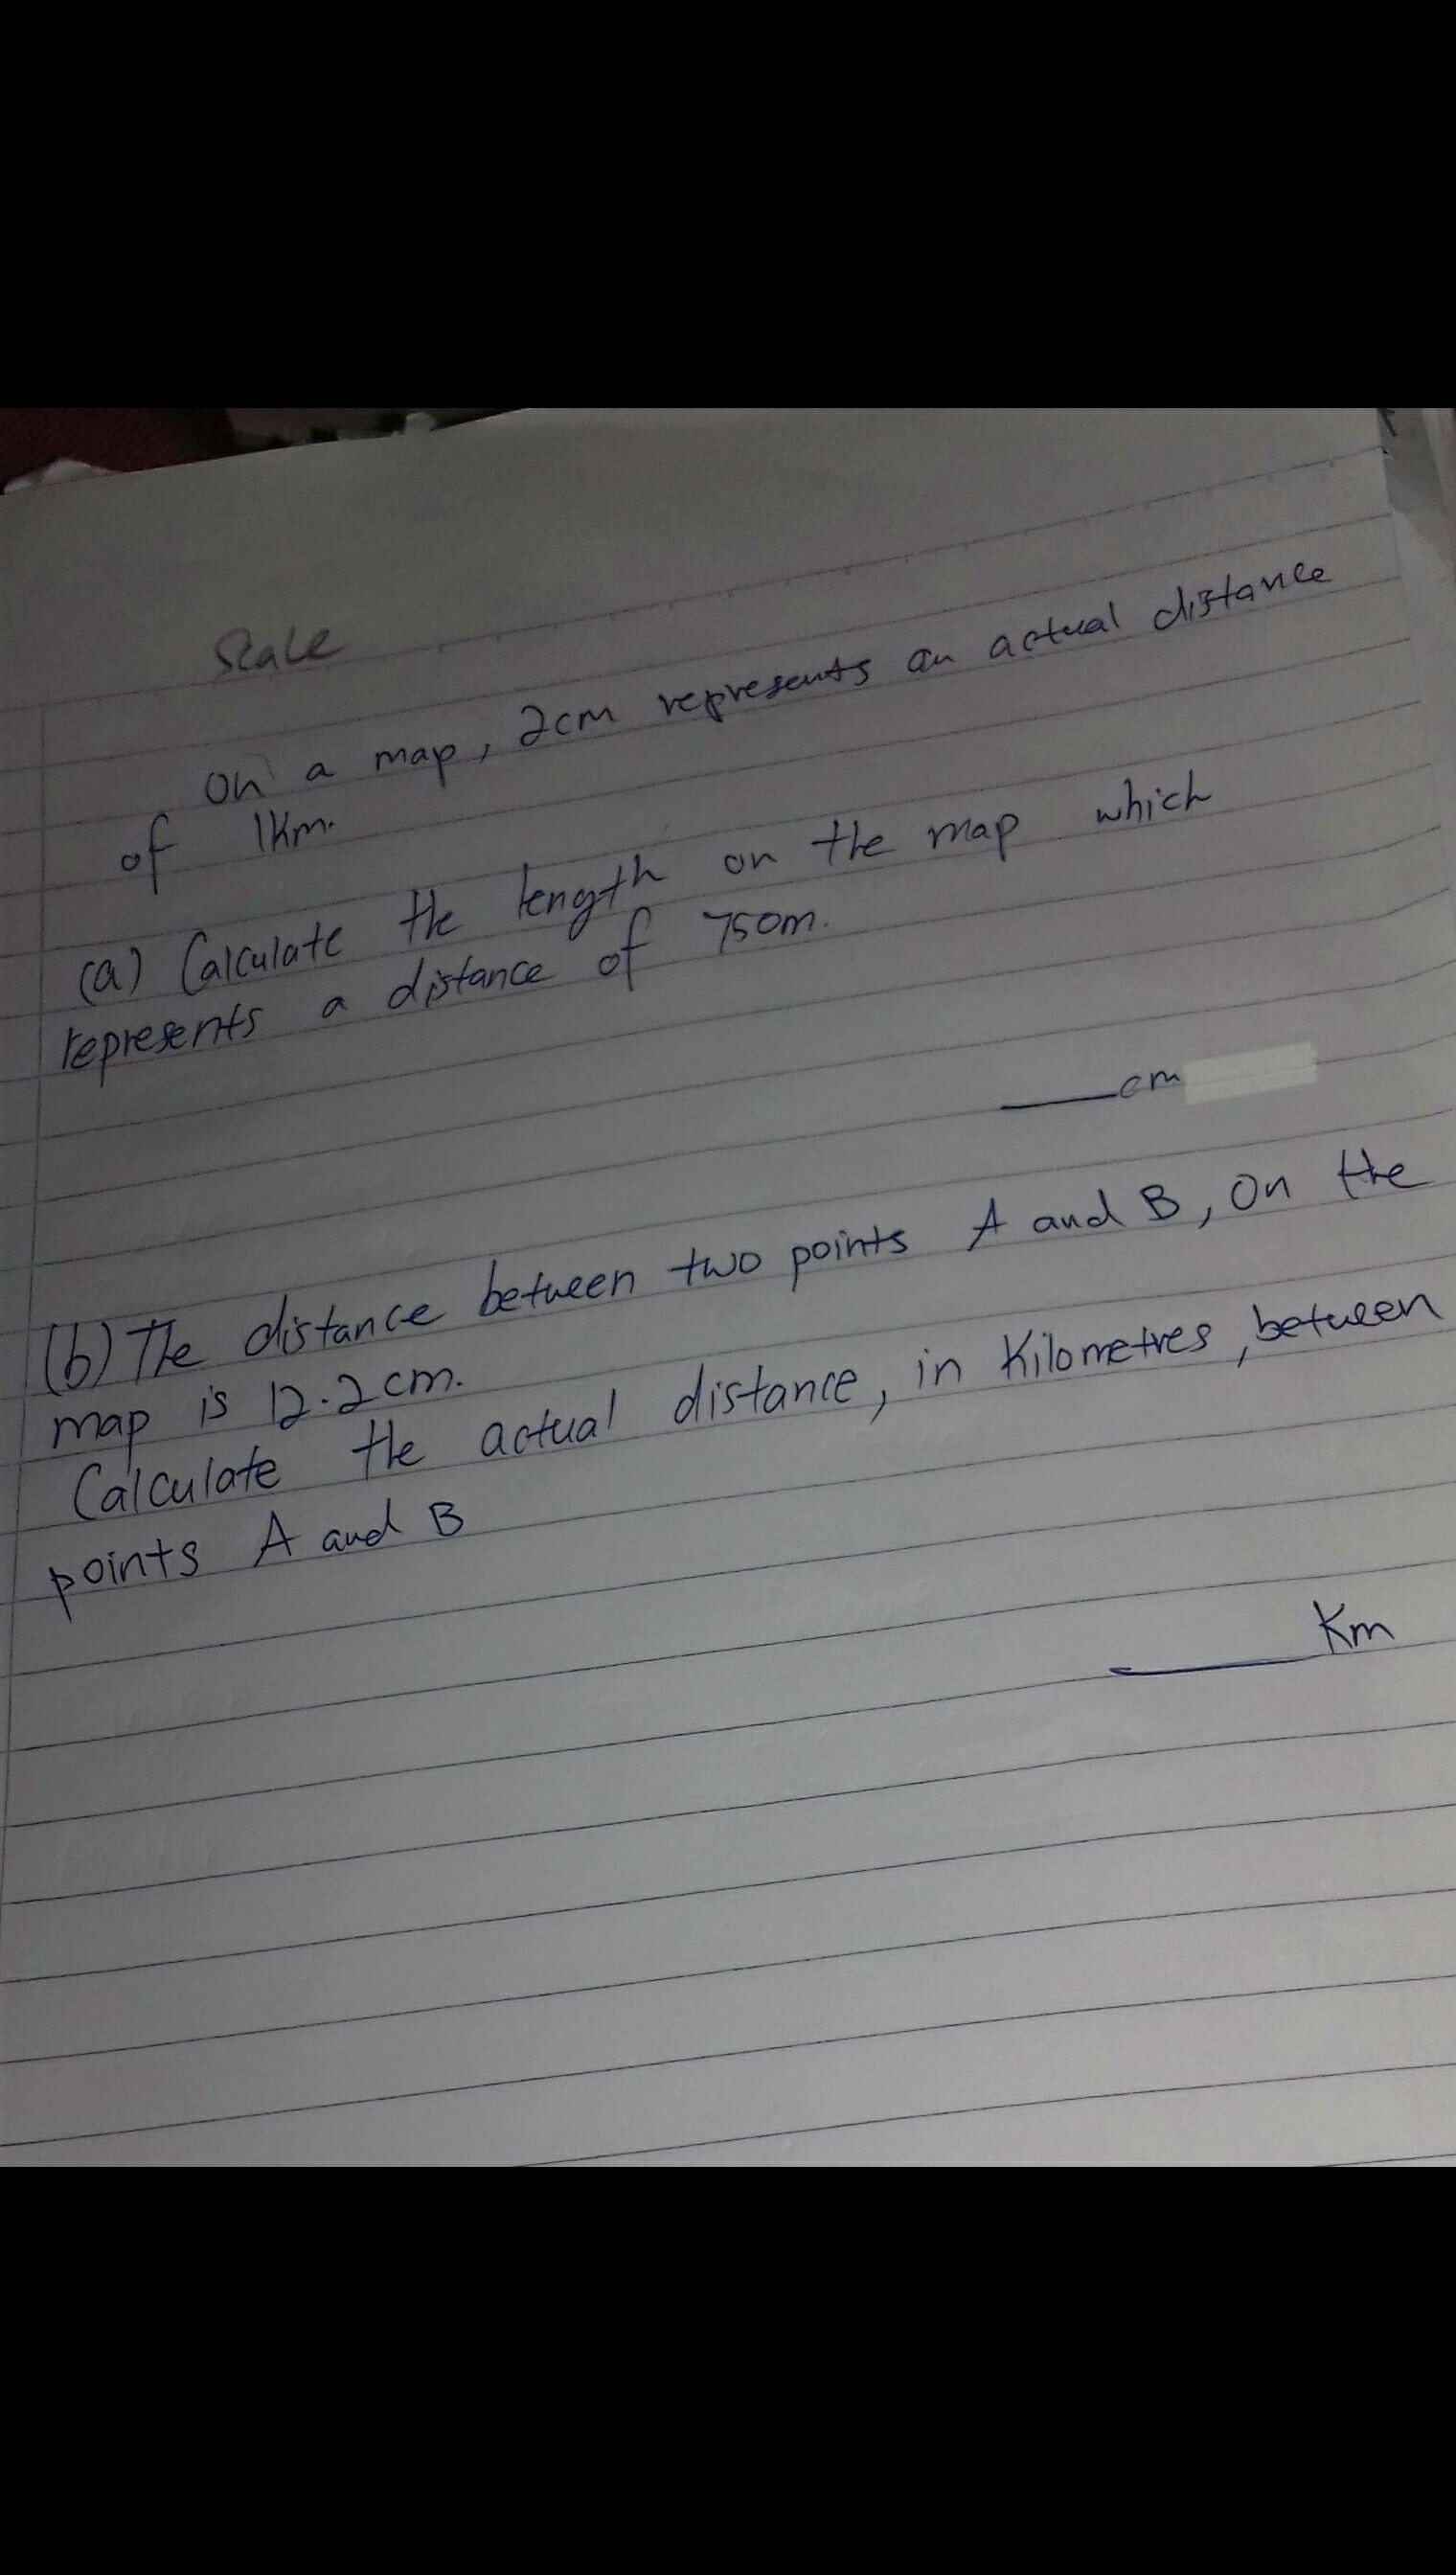 Scale
On a map, 2cm represents an actual distance
of 1Km.
(a) Calculate the length on the map which
represents a distance of 750m.
____cm
(b) The distance between two points A and B, On the
map is 12.2cm.
Calculate the actual distance, in Kilometres, between
points A and B
____ Km